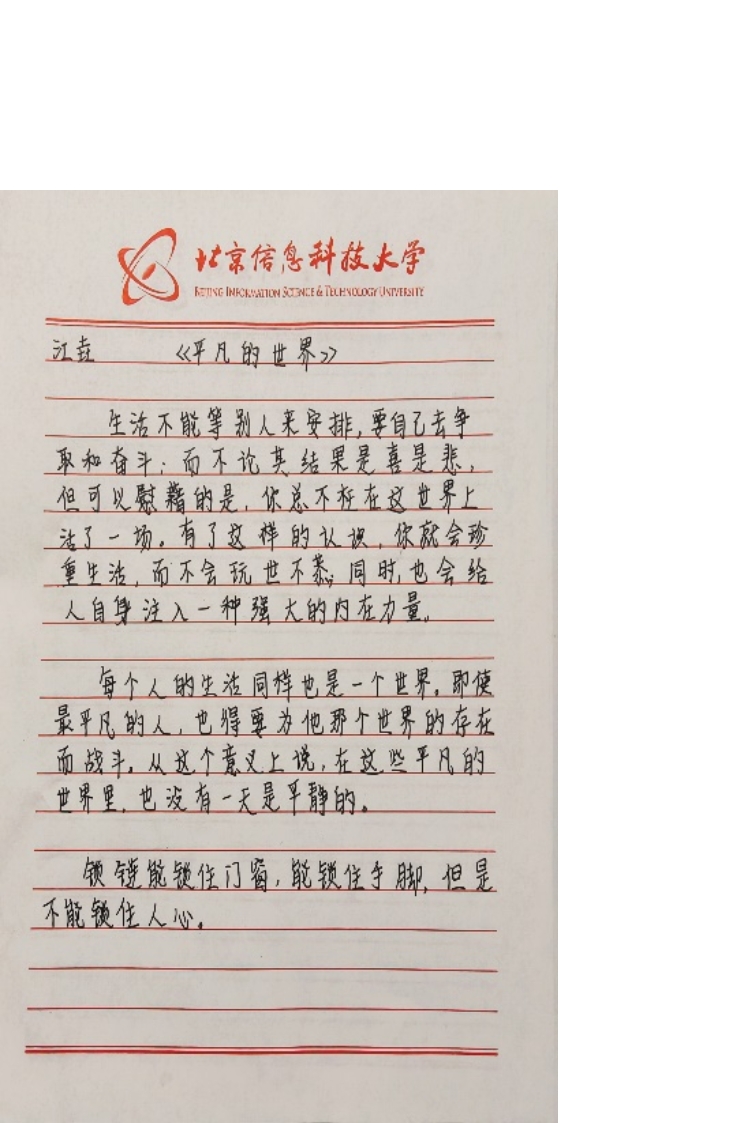 北京信息科技大学
BEIJING INFORMATION SCIENCE & TECHNOLOGY UNIVERSITY
江垚 《平凡的世界》
生活不能等别人来安排,要自己去争
取和奋斗;而不论其结果是喜是悲,
但可以慰藉的是,你总不枉在这世界上
活了一场。有了这样的认识,你就会珍
重生活,而不会玩世不恭;同时,也会给
人自身注入一种强大的内在力量。
每个人的生活同样也是一个世界。即使
最平凡的人,也得要为他那个世界的存在
而战斗。从这个意义上说,在这些平凡的
世界里,也没有一天是平静的。
锁链能锁住门窗,能锁住手脚,但是
不能锁住人心。